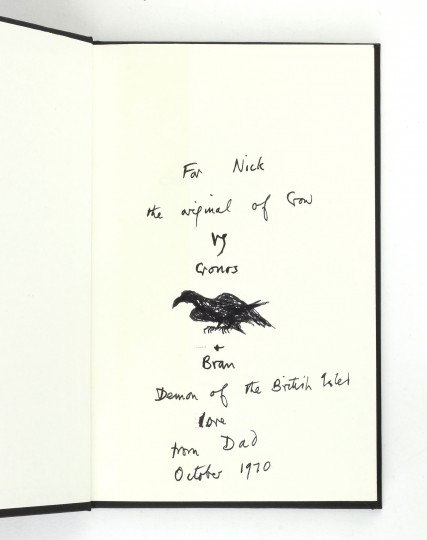 For Nick
the original of Crow
Cronos
+
Bran
Demon of the British Isles
love
from Dad
October 1970